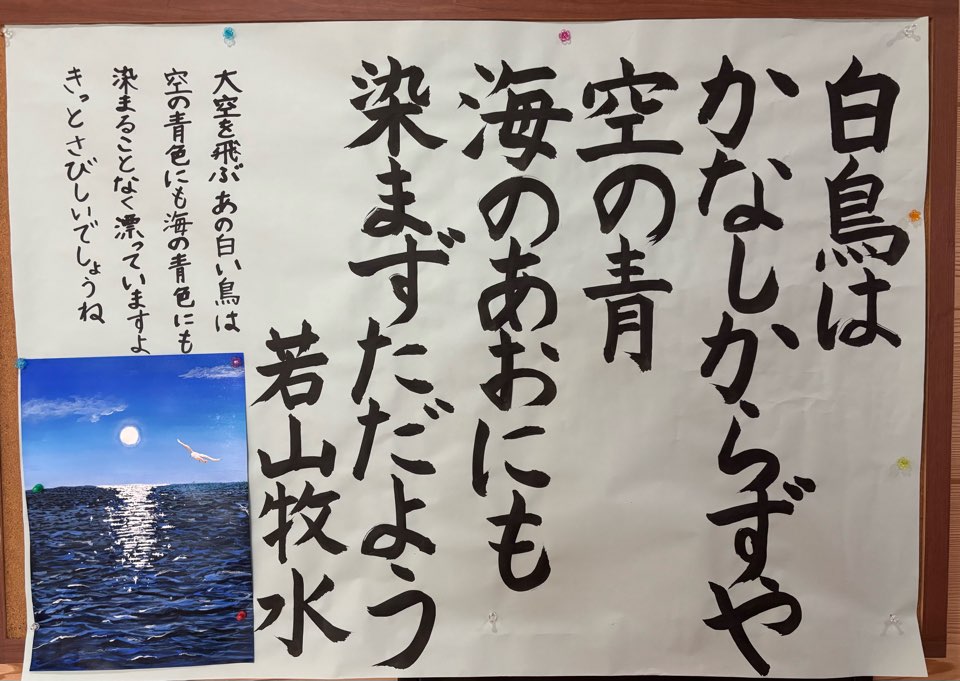 白鳥は
かなしからずや
空の青
海のあおにも
染まずただよう
若山牧水
大空を飛ぶあの白い鳥は
空の青色にも海の青色にも
染まることなく漂っていますよ
きっとさびしいでしょうね